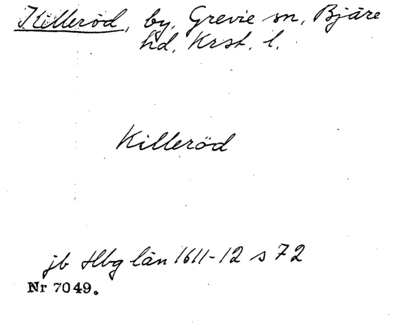 Killeröd, by, Grevie sn, Bjäre
hd, Krst. l.
Killeröd
jb Hbg län 1611-12 s 72
Nr 7049.